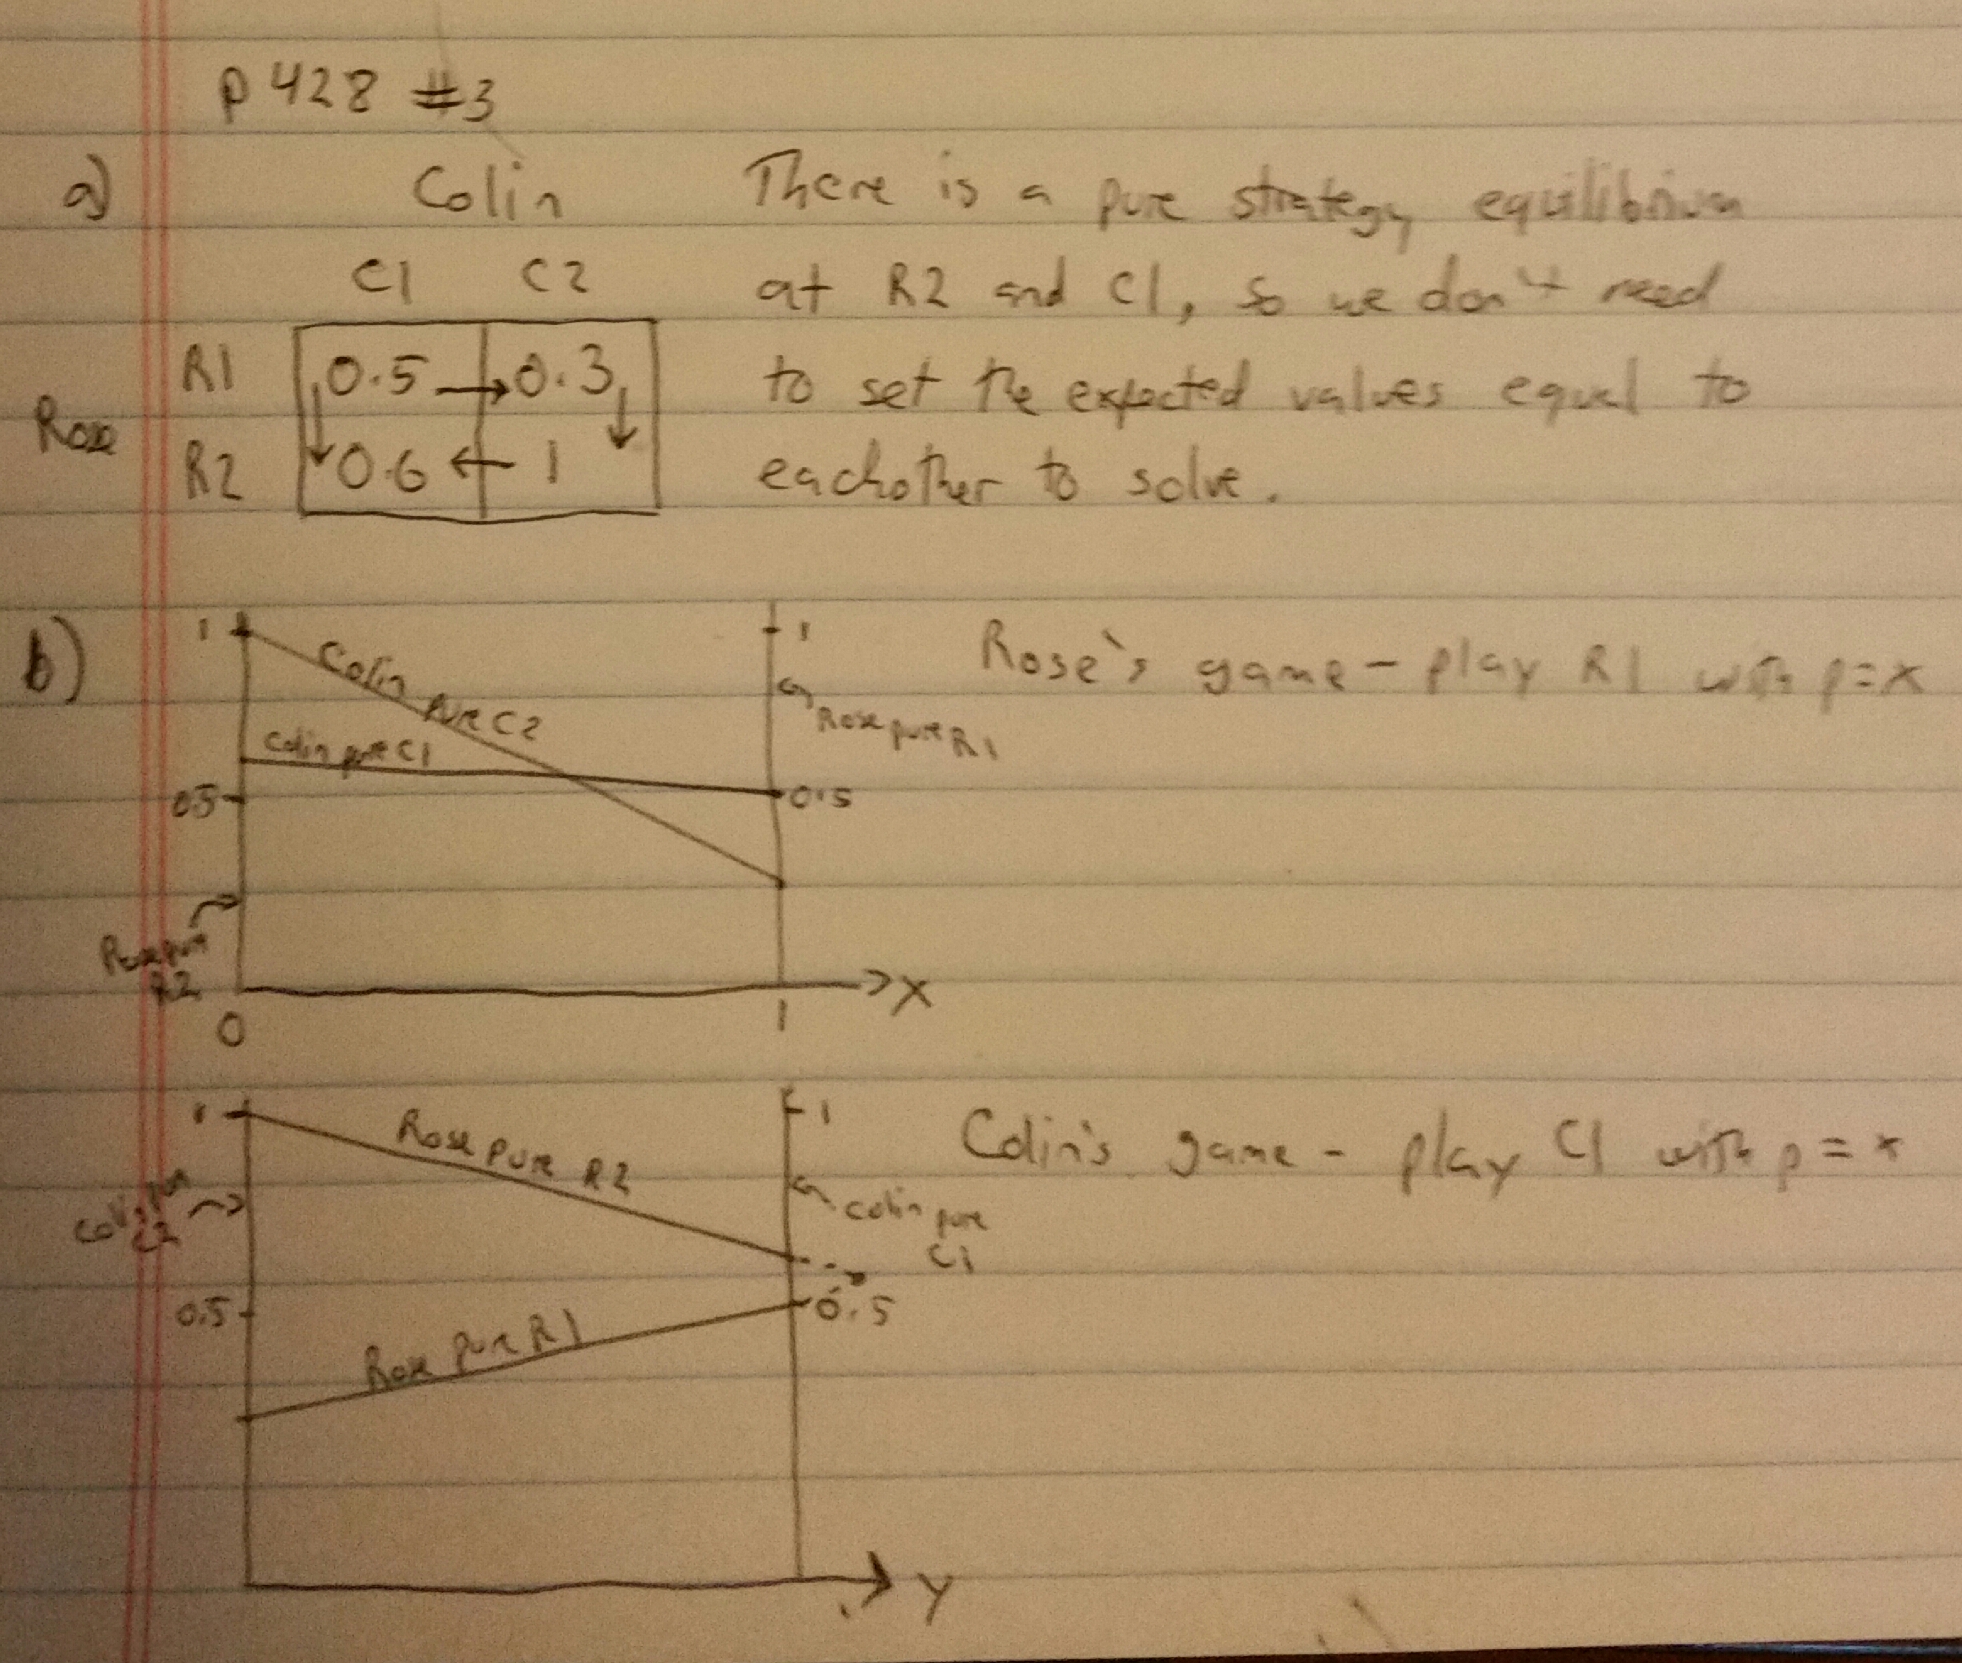 p 428 #3
a)
Colin
C1 C2
R1 0.5 → 0.3
Rose
R2 0.6 ← 1
There is a pure strategy equilibrium
at R2 and C1, so we don't need
to set the expected values equal to
eachother to solve.
b)
1
Colin pure C2
Colin pure C1
0.5
Rose pure
R2
0
1
Rose pure R1
0.5
1
→X
Rose's game - play R1 with p=x
1
Rose pure R2
Colin pure
C2
0.5
Rose pure R1
1
Colin pure
C1
0.5
→Y
Colin's game - play C1 with p=x